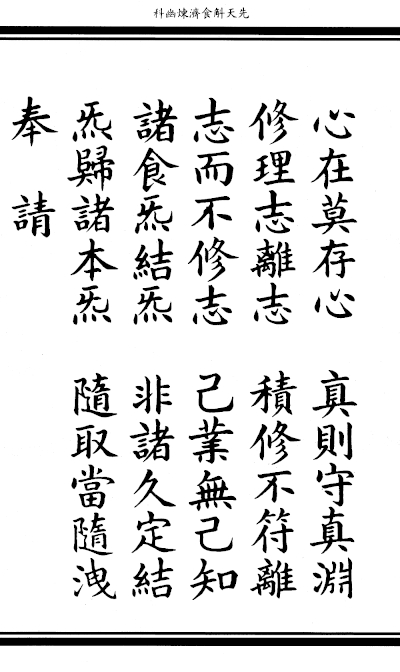 先天斛食濟煉幽科
心在莫存心 真則守真淵
修理志離志 積修不符離
志而不修志 己業無己知
諸食炁結炁 非諸久定結
炁歸諸本炁 隨取當隨洩
奉請